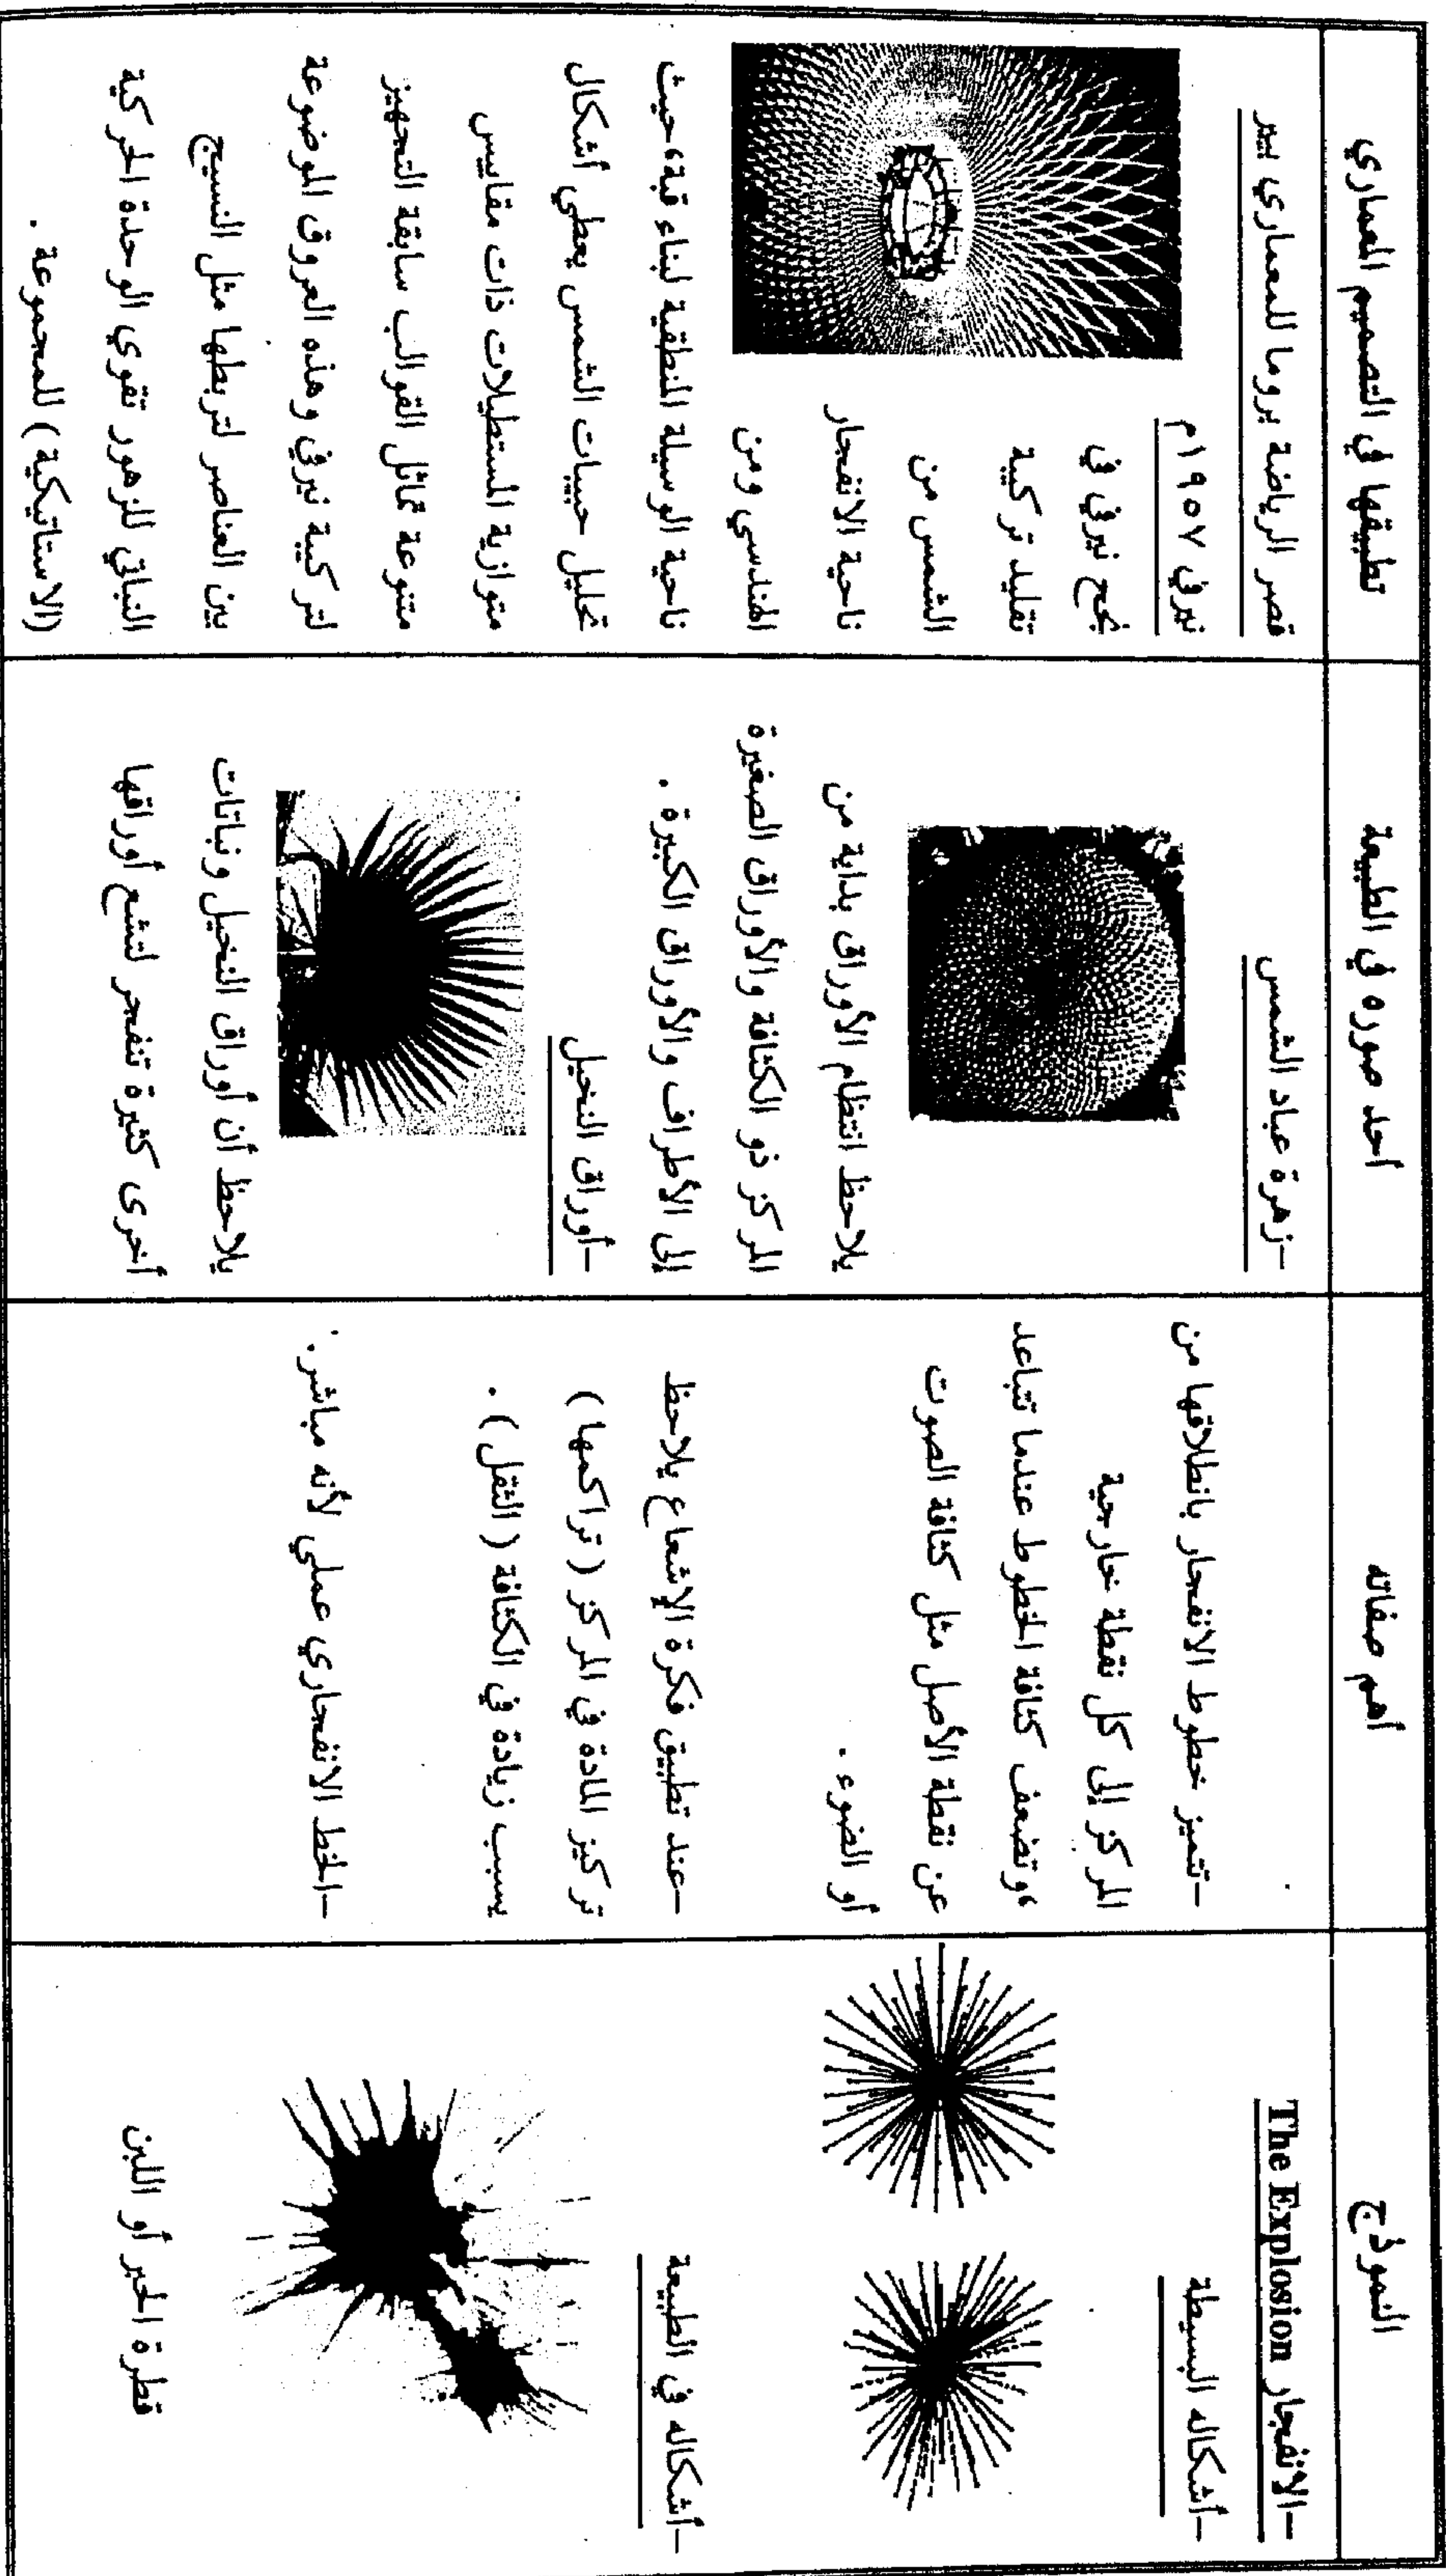 النموذج
أهم صفاته
أحد صوره في الطبيعة
تطبيقها في التصميم المعماري
-الانفجار The Explosion
-أشكاله البسيطة
-أشكاله في الطبيعة
قطرة الحبر أو اللبن
-تتميز خطوط الانفجار بانطلاقها من
المركز إلى كل نقطة خارجية
،وتضعف كثافة الخطوط عندما تتباعد
عن نقطة الأصل مثل كثافة الصوت
أو الضوء .
-عند تطبيق فكرة الإشعاع يلاحظ
تركيز المادة في المركز ( تراكمها )
يسبب زيادة في الكثافة ( الثقل ) .
-الخط الانفجاري عملي لأنه مباشر.
-زهرة عباد الشمس
يلاحظ انتظام الأوراق بداية من
المركز ذو الكثافة والأوراق الصغيرة
إلى الأطراف والأوراق الكبيرة .
-أوراق النخيل
يلاحظ أن أوراق النخيل ونباتات
أخرى كثيرة تنفجر لتشع أوراقها
قصر الرياضة بروما للمعماري بيير
نيرفي ١٩٥٧م
نجح نيرفي في
تقليد تركيبة
الشمس من
ناحية الانفجار
الهندسي ومن
ناحية الوسيلة المنطقية لبناء قبة،حيث
تحليل حبيبات الشمس يعطي أشكال
متوازية المستطيلات ذات مقاييس
متنوعة تماثل القوالب سابقة التجهيز
لتركيبة نيرفي وهذه العروق الموضوعة
بين العناصر لتربطها مثل النسيج
النباتي للزهور تقوي الوحدة الحركية
(الاستاتيكية) للمجموعة .